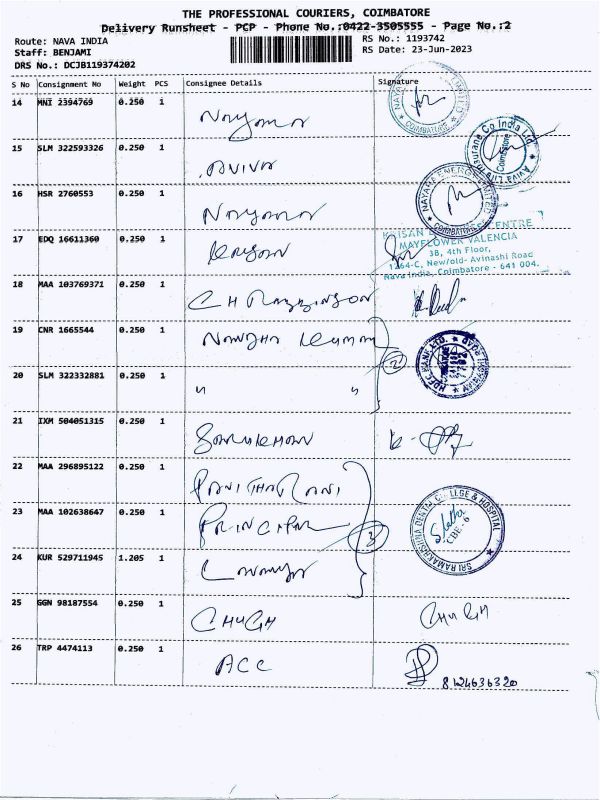 THE PROFESSIONAL COURIERS, COIMBATORE
Delivery Runsheet - PCP - Phone No.:0422-3505555 - Page No.:2
Route: NAVA INDIA
RS No.: 1193742
Staff: BENJAMI
RS Date: 23-Jun-2023
DRS No.: DCJB119374202
S No Consignment No Weight PCS Consignee Details Signature
14 MNI 2394769 0.250 1 Nayara
NAYARA ENERGY LIMITED COIMBATORE
15 SLM 322593326 0.250 1 AVIVA
Aviva Life Insurance Co India Ltd. Coimbatore
16 HSR 2760553 0.250 1 Nayara
NAYARA ENERGY LIMITED COIMBATORE
17 EDQ 16611360 0.250 1 Kaisan
KAISAN CENTRE
MAYFLOWER VALENCIA
3B, 4th Floor,
1264-C, New/old- Avinashi Road
Nava India, Coimbatore - 641 004.
18 MAA 103769371 0.250 1
19 CNR 1665544 0.250 1 NANDHA Kumar
2
HDFC BANK LTD.
20 SLM 322332881 0.250 1 " "
21 IXM 504051315 0.250 1
22 MAA 296895122 0.250 1
23 MAA 102638647 0.250 1 PRINCIPAL
3
SRI RAMAKRISHNA DENTAL COLLEGE & HOSPITAL
CBE - 6
24 KUR 529711945 1.205 1 Lavanya
25 GGN 98187554 0.250 1 CHUGH CHUGH
26 TRP 4474113 0.250 1 ACC
8124636320